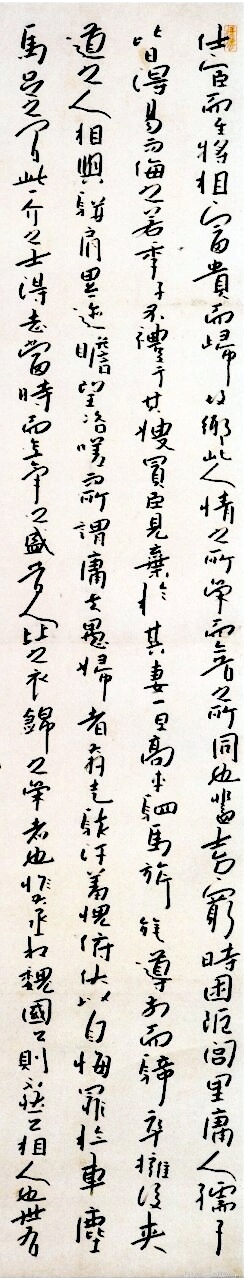 仕宦而至將相富貴而歸故鄉此人情之所榮而今昔之所同也蓋士方窮時困阨閭里庸人孺子
皆得易而侮之若季子不禮于其嫂買臣見棄於其妻一旦高車駟馬旂旄導前而騎卒擁後夾
道之人相與駢肩累迹瞻望咨嗟所謂庸夫愚婦者奔走駭汗羞愧俯伏以自悔罪於車塵
馬足之間此一介之士得志當時而意氣之盛昔人比之衣錦之榮者也惟大丞相魏國公則不然公相人也世有